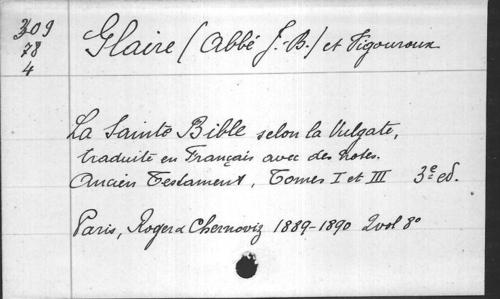 309
78
4
Glaire (Abbé J. B.) et Vigouroux
La Sainte Bible selon la Vulgate,
traduite en Français avec des notes.
Ancien Testament, Tomes I et III 3e ed.
Paris, Roger & Chernoviz 1889-1890 2vol 8°